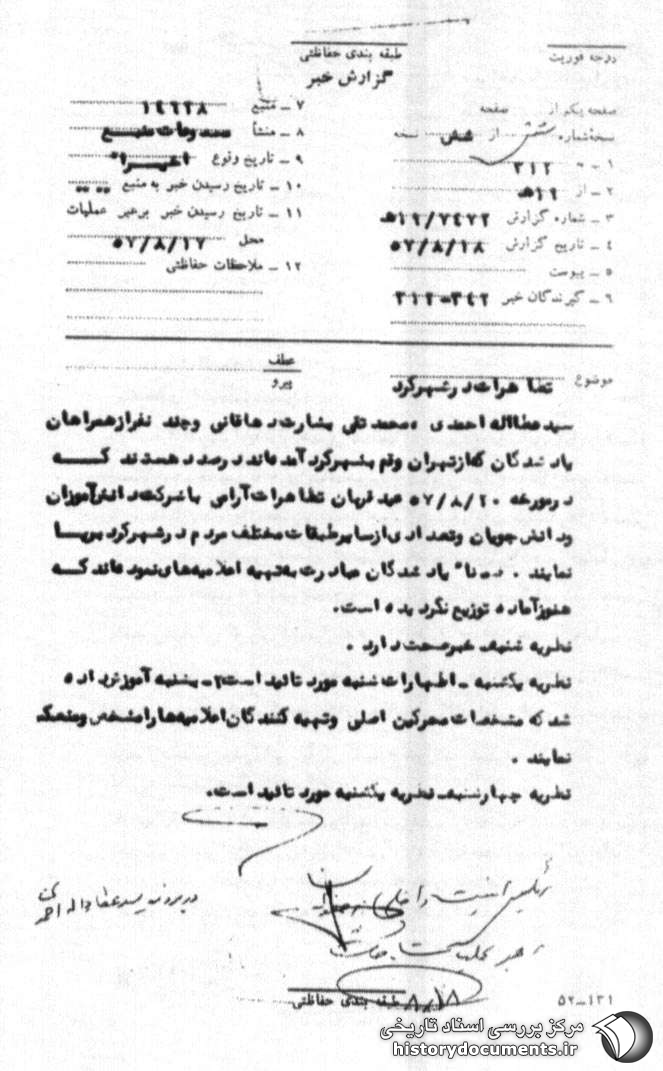 طبقه بندی حفاظتی
گزارش خبر
درجه فوریت
صفحه یکم از صفحه
نسخه شماره شش از شش نسخه
۱ - به ۳۱۲
۲ - از ۱۹هـ
۳ - شماره گزارش ۱۹/۷۴۷۲هـ
۴ - تاریخ گزارش ۵۷/۸/۱۸
۵ - پیوست
۶ - گیرندگان خبر ۳۴۲-۳۱۲
۷ - منبع ۱۴۶۳۸
۸ - منشأ مسموعات منبع
۹ - تاریخ وقوع اخیراً
۱۰ - تاریخ رسیدن خبر به منبع
۱۱ - تاریخ رسیدن خبر برهبر عملیات
محل ۵۷/۸/۱۷
۱۲ - ملاحظات حفاظتی
موضوع تظاهرات در شهرکرد
عطف
پیرو
سیدعطااله احمدی ، محمدتقی بشارت دهاقانی و چند نفر از همراهان
یادشدگان که از تهران و قم بشهرکرد آمده‌اند درصدد هستند کــه
در مورخه ۵۷/۸/۲۰ عید قربان تظاهرات آرامی با شرکت دانش‌آموزان
و دانش‌جویان و تعدادی از سایر طبقات مختلف مردم در شهرکرد برپــا
نمایند . ضمناً یادشدگان مبادرت به تهیه اعلامیه‌های نموده‌اند کــه
هنوز آماده توزیع نگردیده است.
نظریه شنبه. خبر صحت دارد .
نظریه یکشنبه - اظهارات شنبه مورد تائید است ۲- بشنبه آموزش داده
شد که مشخصات محرکین اصلی و تهیه کنندگان اعلامیه‌ها را مشخص و منعکس
نمایند .
نظریه چهارشنبه. نظریه یکشنبه مورد تائید است.
رئیس امنیت داخلی
در پرونده سیدعطااله احمدی
۸/۱۸
طبقه بندی حفاظتی
۵۲-۱۳۱
مرکز بررسی اسناد تاریخی
historydocuments.ir